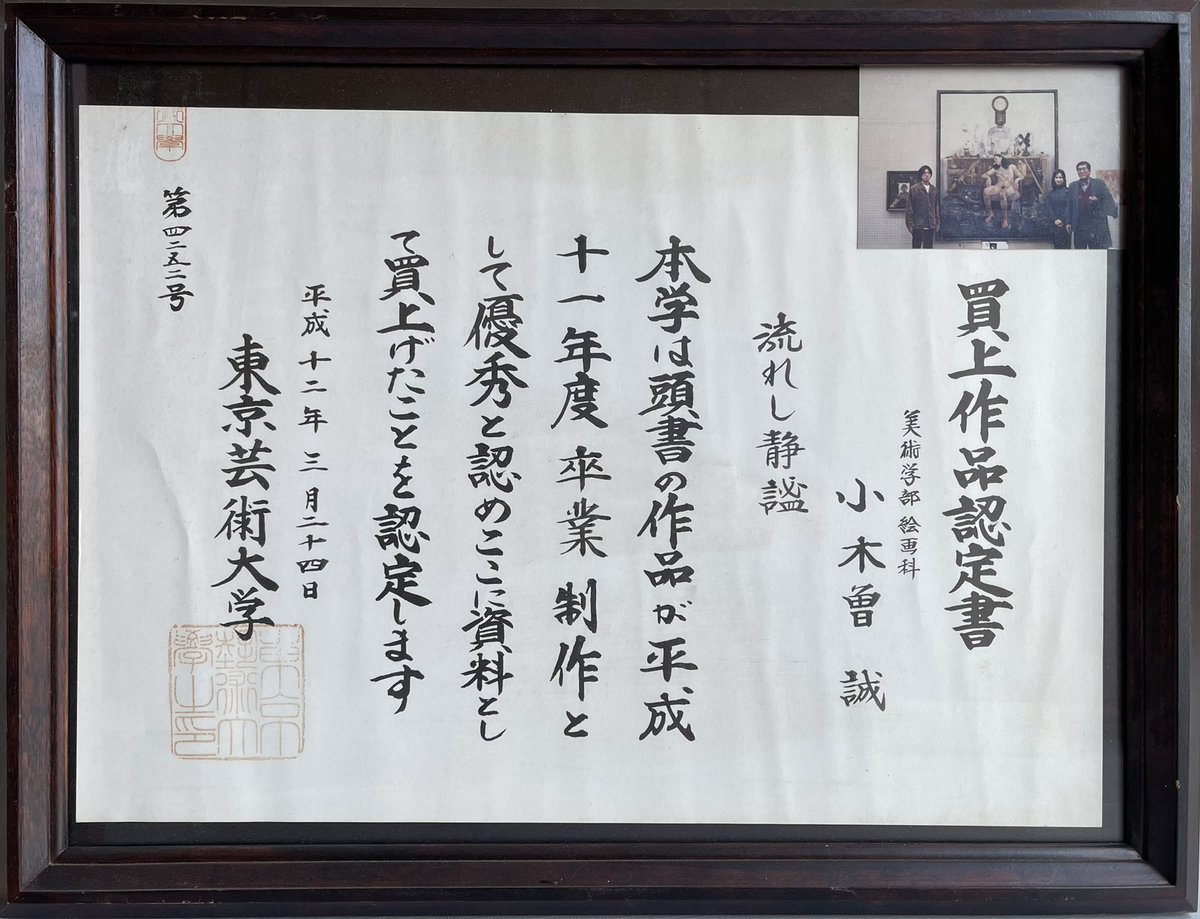 買上作品認定書
美術学部 絵画科
小木曽 誠
流れし静謐
本学は頭書の作品が平成
十一年度卒業制作と
して優秀と認めここに資料とし
て買上げたことを認定します
平成十二年三月二十四日
東京芸術大学
第四二五二号